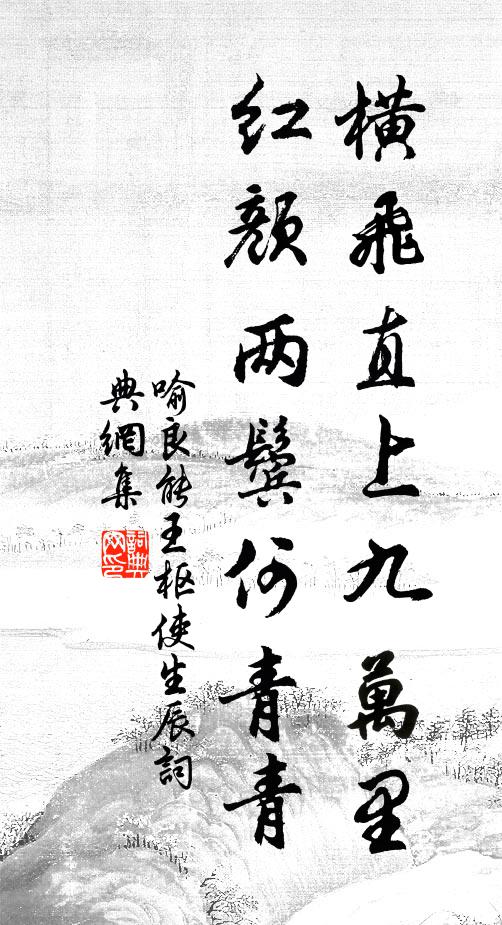 横飛直上九萬里
紅顏两鬢何青青
喻良能王樞使生辰詞
典網集
詞典
网印